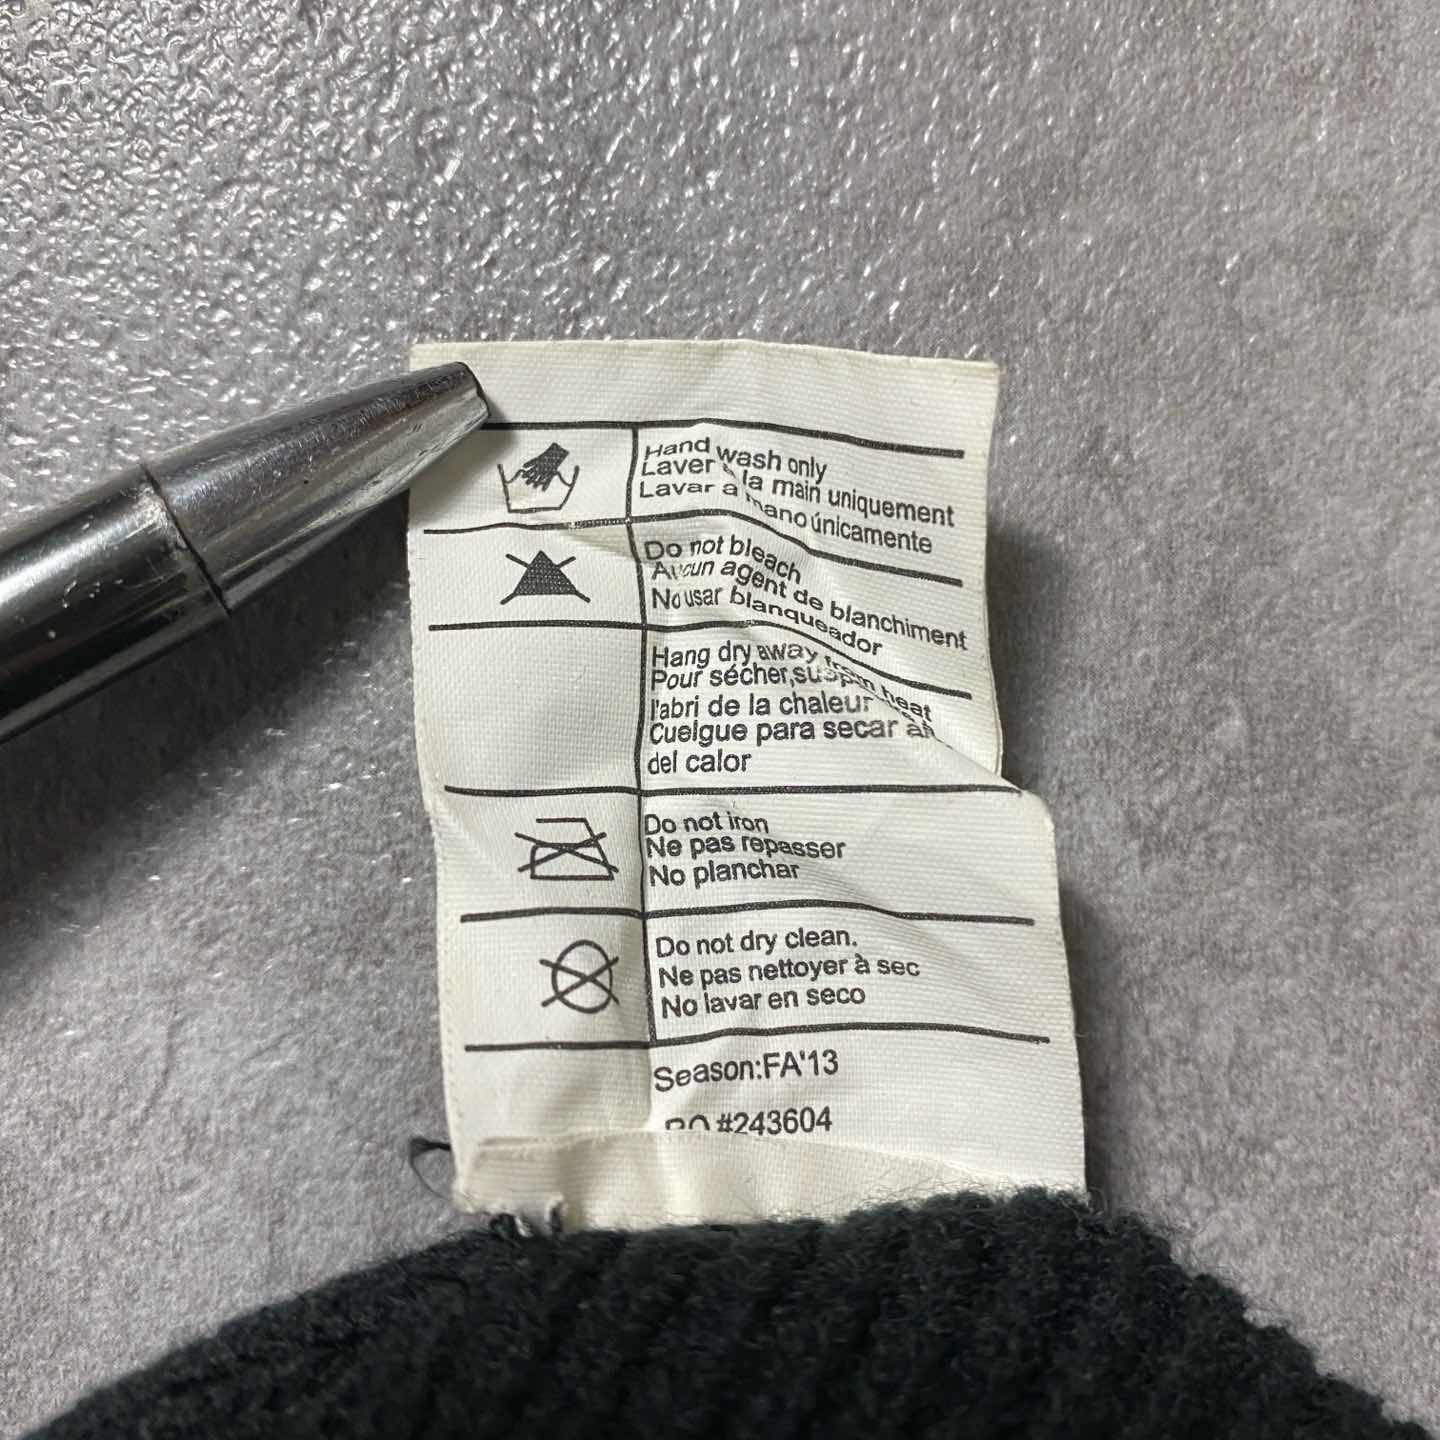 Hand wash only
Laver à la main uniquement
Lavar a mano únicamente
Do not bleach
Aucun agent de blanchiment
No usar blanqueador
Hang dry away from heat
Pour sécher,
l'abri de la chaleur
Cuelgue para secar
del calor
Do not iron
Ne pas repasser
No planchar
Do not dry clean.
Ne pas nettoyer à sec
No lavar en seco
Season:FA'13
PO #243604